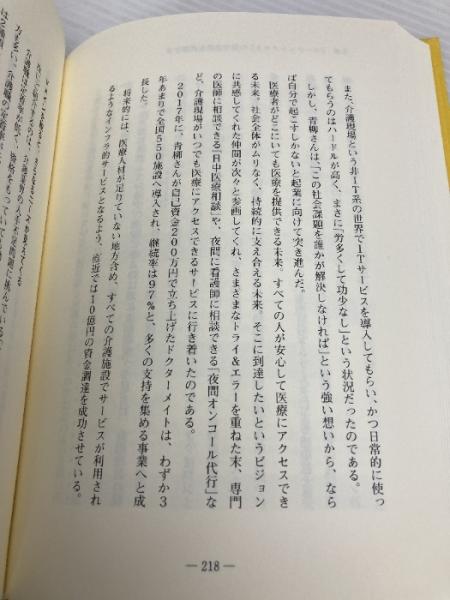 また、介護現場という非IT系の世界でITサービスを導入してもらい、かつ日常的に使っ
てもらうのはハードルが高く、まさに「労多くして功少なし」という状況だったのである。
しかし、青柳さんは、「この社会課題を誰かが解決しなければ」という強い想いから、なら
ば自分で起こすしかないと起業に向けて突き進んだ。
医療者がどこにいても医療を提供できる未来、すべての人が安心して医療にアクセスでき
る未来。社会全体がムリなく、持続的に支え合える未来。そこに到達したいというビジョン
に共感してくれた仲間が次々と参画してくれ、さまざまなトライ&エラーを重ねた末、専門
の医師に相談できる「日中医療相談」や、夜間に看護師に相談できる「夜間オンコール代行」な
ど、介護現場がいつでも医療にアクセスできるサービスに行き着いたのである。
2017年に、青柳さんが自己資金200万円で立ち上げたドクターメイトは、わずか3
年あまりで全国550施設へ導入され、継続率は97%と、多くの支持を集める事業へと成
長した。
将来的には、医療人材が足りていない地方含め、すべての介護施設でサービスが利用され
るようなインフラ的サービスとなるよう、直近では10億円の資金調達を成功させている。
— 218 —